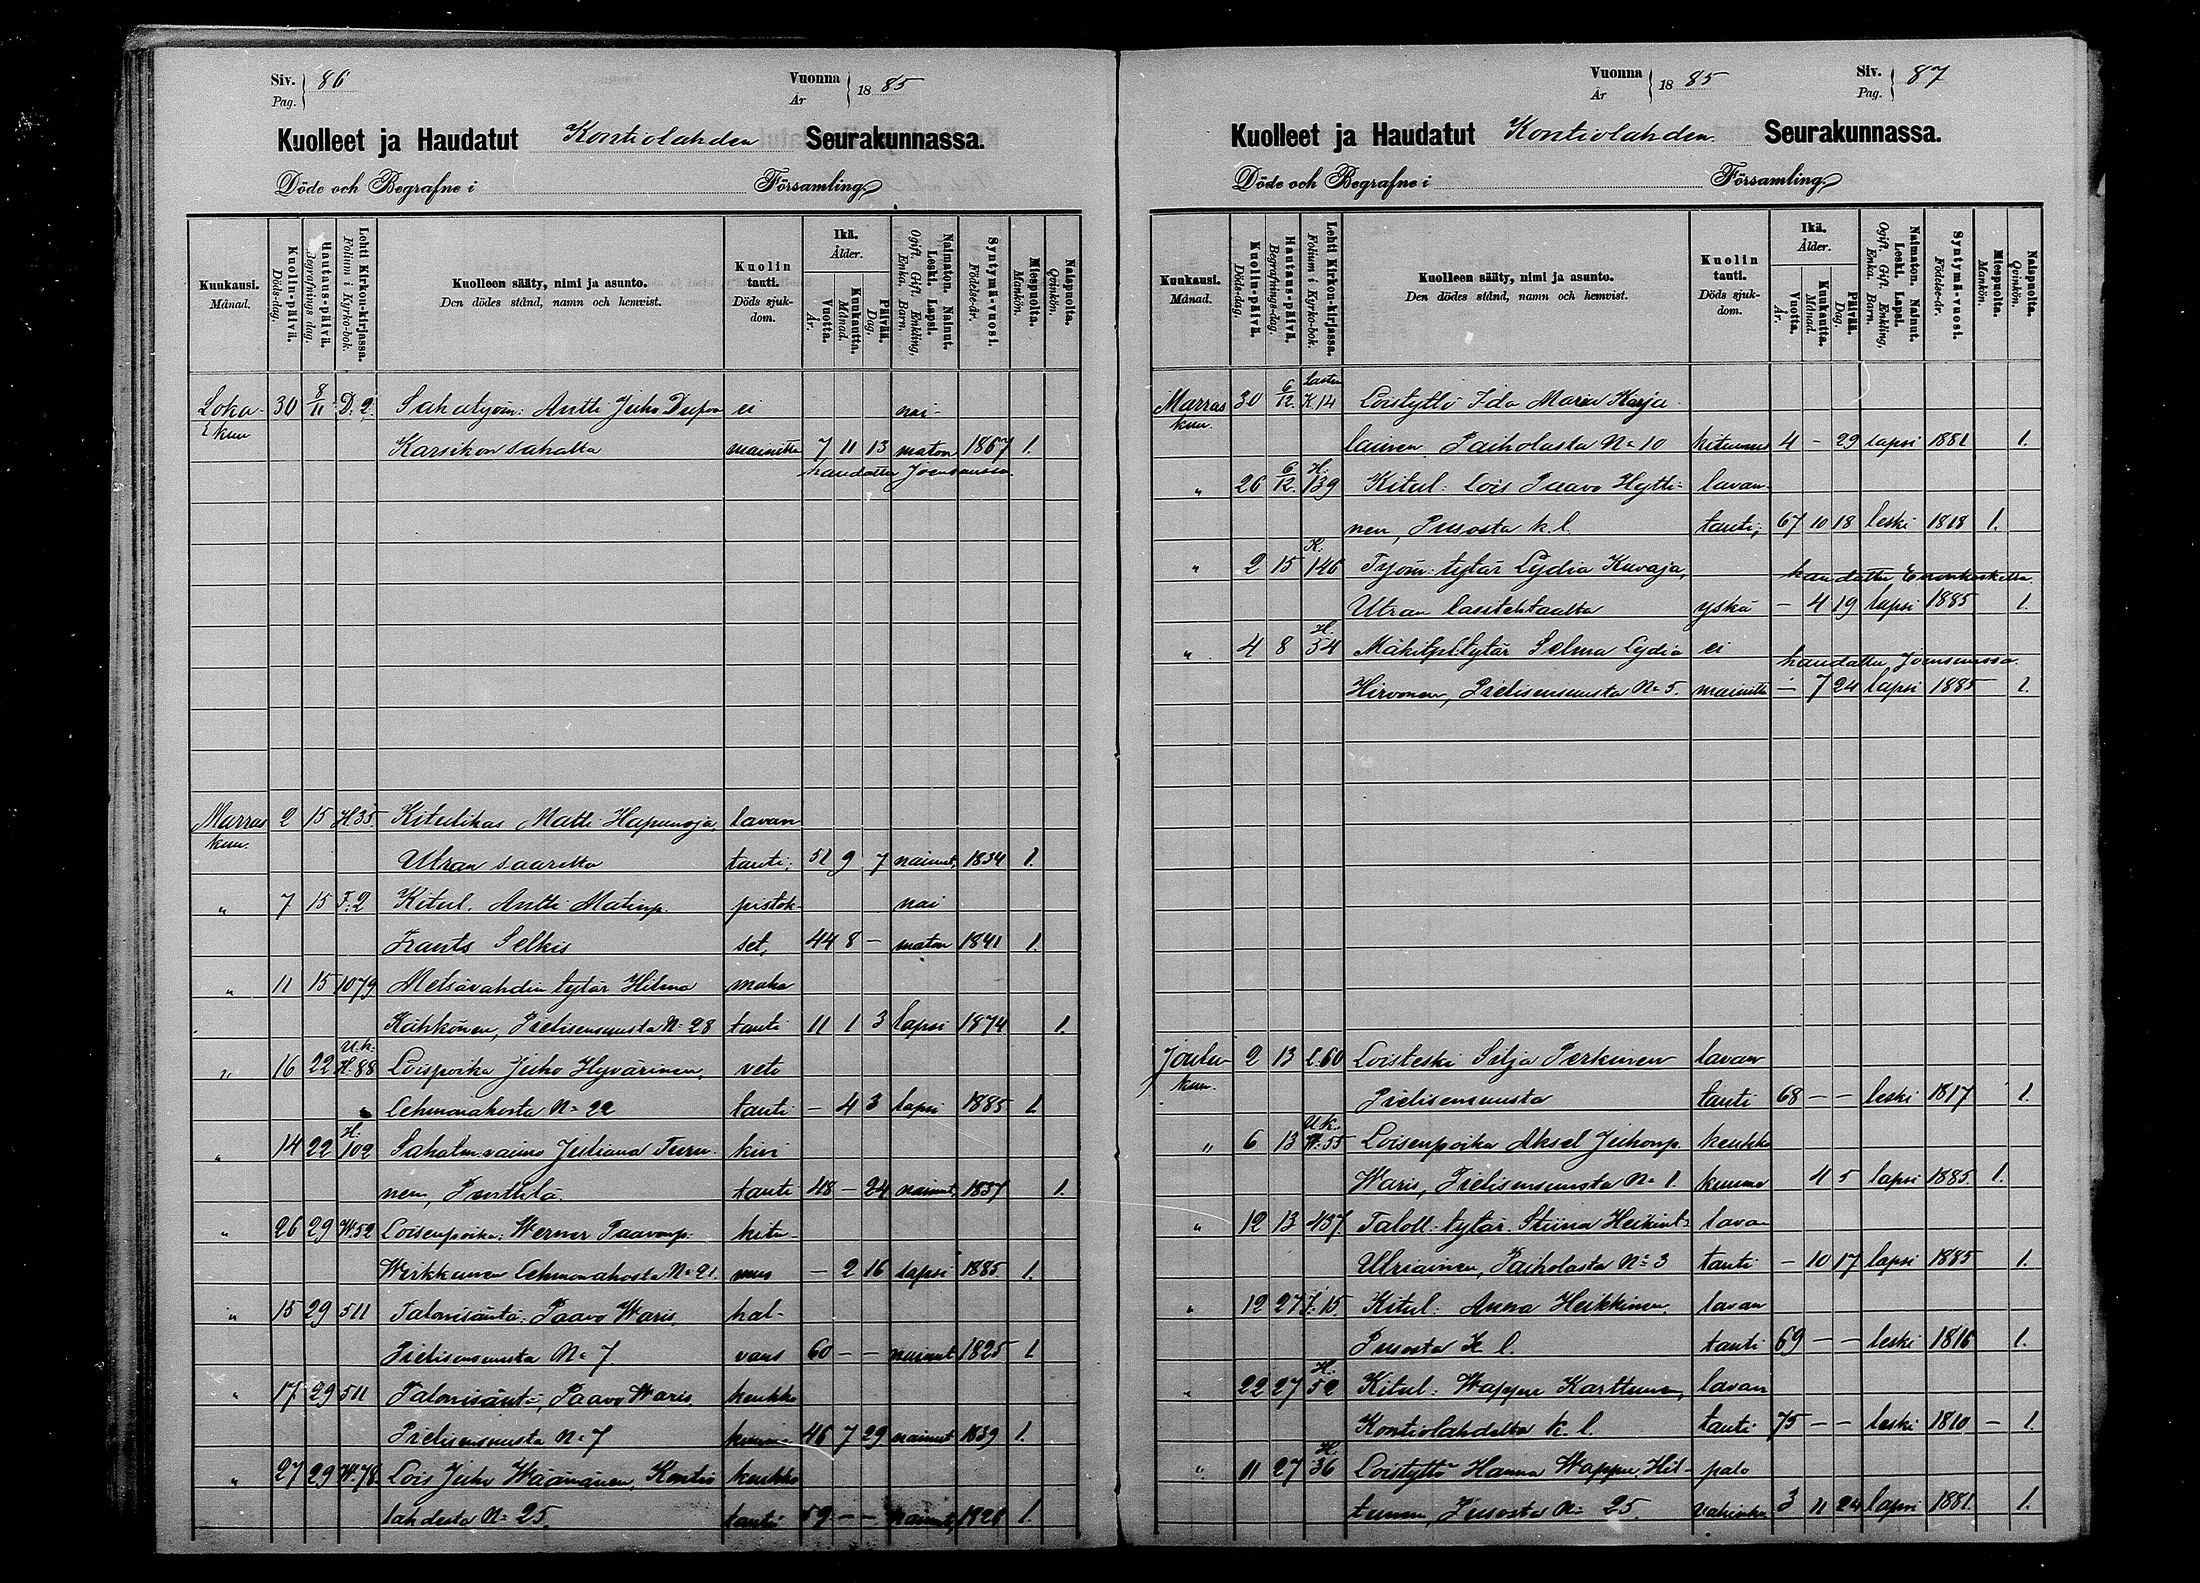 Siv. 86 Vuonna 1885
Pag. År
Kuolleet ja Haudatut Kontiolahden Seurakunnassa.
Döde och Begrafne i Församling
Kuukausi. Månad.
Kuolin-päivä. Döds-dag.
Hautaus-päivä. Begrafnings dag.
Lehti Kirkon-kirjassa. Folium i Kyrko-bok.
Kuolleen sääty, nimi ja asunto. Den dödes stånd, namn och hemvist.
Kuolin tauti. Döds sjuk-dom.
Ikä. Ålder.
Vuotta. År.
Kuukautta. Månad.
Päivää. Dag.
Naimaton. Nainut. Leski. Lapsi. Ogift. Gift. Enkling, Enka. Barn.
Syntymä-vuosi. Födelse-år.
Miespuolta. Mankön.
Naispuolta. Qvinkön.
Loka- 30 8/11 D. 2. Sahatyöm: Antti Juho ei nai-
kuu Karsikon sahalta mainittu 7 11 13 maton 1867 1.
haudattu Joensuussa
Marras 2 15 H 35. Kitulikas Matti Hapunoja, lavan
kuu. Utran saarelta tauti. 51 9 7 nainut, 1834 1.
" 7 15 F. 2 Kitul. Antti Matinp. pistok- nai
Frants Selkis set, 44 8 – maton 1841 1.
" 11 15 1079 Metsävahdin tytär Hilma maha
Kähkönen, Pielisensuusta N: 28 tauti 11 1 3 lapsi 1874 1.
" 16 22 U.k: H. 88 Loispoika Juho Hyvärinen, veto
Lehmonahosta N: 22 tauti – 4 3 lapsi 1885 1
" 14 22 H: 102 Sahalm. vaimo Juliana Turu- kivi
nen, Purttilä tauti 48 – 24 nainut, 1837 1.
" 26 29 W. 52 Loisenpoika: Werner Paavonp. kitu-
Wirkkunen Lehmonahosta N: 21. mus – 2 16 lapsi 1885. 1.
" 15 29 511 Talonisäntä: Paavo Waris, hal-
Pielisensuusta N: 7 vaus 60 – – nainut 1825 1
" 17 29 511 Talonisänt:, Paavo Waris keuhko
Pielisensuusta N: 7 kuume 46 7 29 nainut 1839 1.
" 27 29 W. 78. Lois Juho Wäänänen, Kontio keuhko
lahdesta N: 25. tauti 59 – – nainut, 1826 1.
Vuonna 1885 Siv. 87
År Pag.
Kuolleet ja Haudatut Kontiolahden. Seurakunnassa.
Döde och Begrafne i Församling
Kuukausi. Månad.
Kuolin-päivä. Döds-dag.
Hautaus-päivä. Begrafnings-dag.
Lehti Kirkon-kirjassa. Folium i Kyrko-bok.
Kuolleen sääty, nimi ja asunto. Den dödes stånd, namn och hemvist.
Kuolin tauti. Döds sjuk-dom.
Ikä. Ålder.
Vuotta. År.
Kuukautta. Månad.
Päivää. Dag.
Naimaton. Nainut. Leski. Lapsi. Ogift. Gift. Enkling, Enka. Barn.
Syntymä-vuosi. Födelse-år.
Miespuolta. Mankön.
Naispuolta. Qvinkön.
Marras 30 6/12. Lasten K 14 Loistyttö Ida Maria Karja-
kuu. lainen Paiholasta N: 10 kitumus 4 – 29 lapsi 1881 1.
" 26 6/12. H: 139 Kitul: lois Paavo Hytti- lavan-
nen, Pusosta k. l. tauti, 67 10 18 leski 1818 1.
" 2 15 K: 146 Työm: tytär Lydia Kuvaja, haudattu Enonkoskella.
Utran lasitehtaalta yskä – 4 19 lapsi 1885 1.
" 4 8 H. 54 Mäkitpl. tytär Selma Lydia ei haudattu Joensuussa.
Hirvonen, Pielisensuusta N: 5. mainittu – 7 24 lapsi 1885 1.
Joulu- 2 13 L. 60 Loisleski Silja Perkinen lavan
kuu. Pielisensuusta tauti 68 – – leski 1817 1.
" 6 13 U.k. W. 55 Loisenpoika Aksel Juhonp. keuhko
Waris, Pielisensuusta N: 1. kuume 4 5 lapsi 1885. 1.
" 12 13 437. Taloll: tytär Stiina Heikint: lavan
Utriainen, Paiholasta N: 3 tauti – 10 17 lapsi 1885 1.
" 12 27 15. Kitul: Anna Heikkinen, lavan
Pusosta K. l. tauti 69 – – leski 1816 1.
" 22 27 H: 52 Kitul: Wappu Karttunen, lavan
Kontiolahdelta k. l. tauti 75 – – leski 1810 – 1.
" 11 27 H: 36 Loistyttö Hanna Wappu Hil- palo
tunen, Pusosta N: 25. vahinko 3 11 24 lapsi 1881. 1.